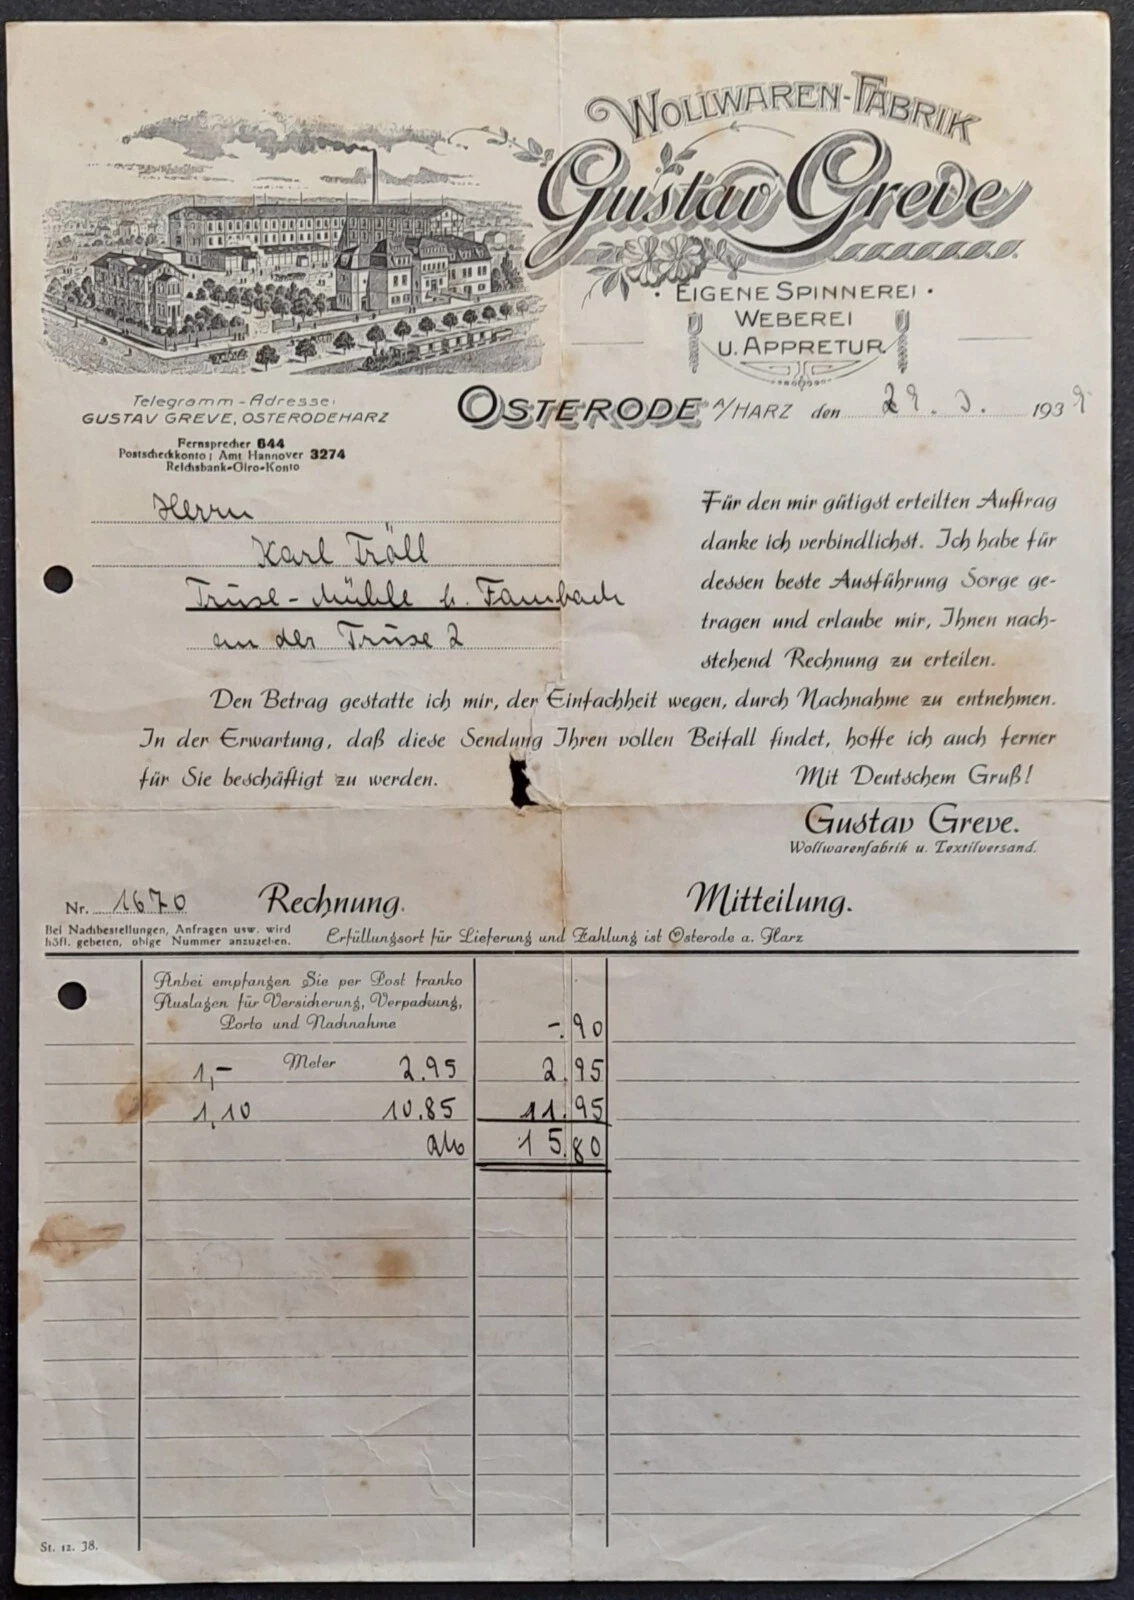 WOLLWAREN-FABRIK
Gustav Greve
· EIGENE SPINNEREI ·
WEBEREI
U. APPRETUR
Telegramm-Adresse:
GUSTAV GREVE, OSTERODEHARZ
OSTERODE A/HARZ den 29. 3. 1939
Fernsprecher 644
Postscheckkonto: Amt Hannover 3274
Reichsbank-Giro-Konto
Herrn
Karl Tröll
Truse-Mühle b. Fambach
an der Truse 2
Für den mir gütigst erteilten Auftrag
danke ich verbindlichst. Ich habe für
dessen beste Ausführung Sorge ge-
tragen und erlaube mir, Ihnen nach-
stehend Rechnung zu erteilen.
Den Betrag gestatte ich mir, der Einfachheit wegen, durch Nachnahme zu entnehmen.
In der Erwartung, daß diese Sendung Ihren vollen Beifall findet, hoffe ich auch ferner
für Sie beschäftigt zu werden. Mit Deutschem Gruß!
Gustav Greve.
Wollwarenfabrik u. Textilversand.
Nr. 1670 Rechnung. Mitteilung.
Bei Nachbestellungen, Anfragen usw. wird
höfl. gebeten, obige Nummer anzugeben.
Erfüllungsort für Lieferung und Zahlung ist Osterode a. Harz
Anbei empfangen Sie per Post franko
Auslagen für Versicherung, Verpackung,
Porto und Nachnahme -.90
1,- Meter 2.95 2.95
1,10 10.85 11.95
15.80
St. 12. 38.